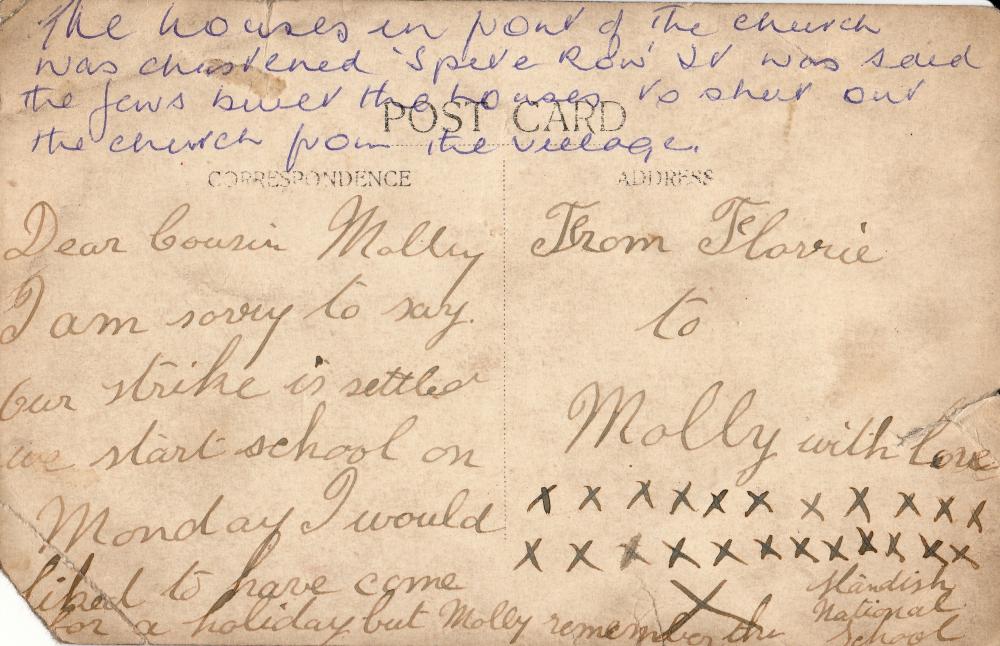 The houses in front of the church
was christened 'Spite Row' It was said
the Jews built the houses to shut out
the church from the village.
POST CARD
CORRESPONDENCE
ADDRESS
Dear Cousin Molly
I am sorry to say
our strike is settled
we start school on
Monday I would
liked to have come
for a holiday but Molly remember the
From Florrie
to
Molly with love
X X X X X X X X X X X
X X X X X X X X X X X X
X
Standish
National
School